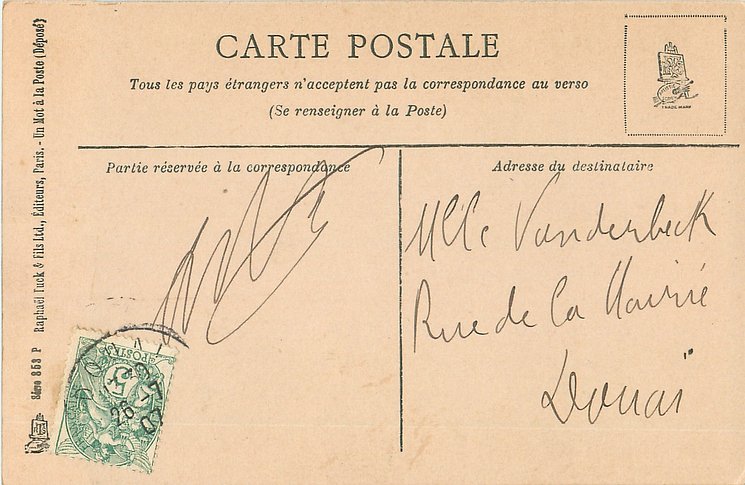 CARTE POSTALE
Tous les pays étrangers n'acceptent pas la correspondance au verso
(Se renseigner à la Poste)
TRADE MARK
Partie réservée à la correspondance
Adresse du destinataire
Mlle Vanderbeck
Rue de la Mairie
Douai
Série 853 P Raphaël Tuck & Fils Ltd., Éditeurs, Paris. - Un Mot à la Poste (Déposé)
POSTES
26